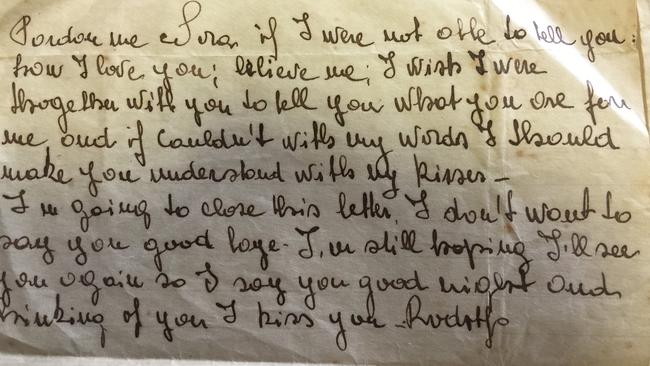 Pardon me Sora if I were not able to tell you:
how I love you; believe me; I wish I were
thogether with you to tell you what you are for
me and if couldn't with my words I should
make you understand with my kisses -
I'm going to close this letter, I don't want to
say you good bye. I'm still hoping I'll see
you again so I say you good night and
thinking of you I kiss you - Rodolfo